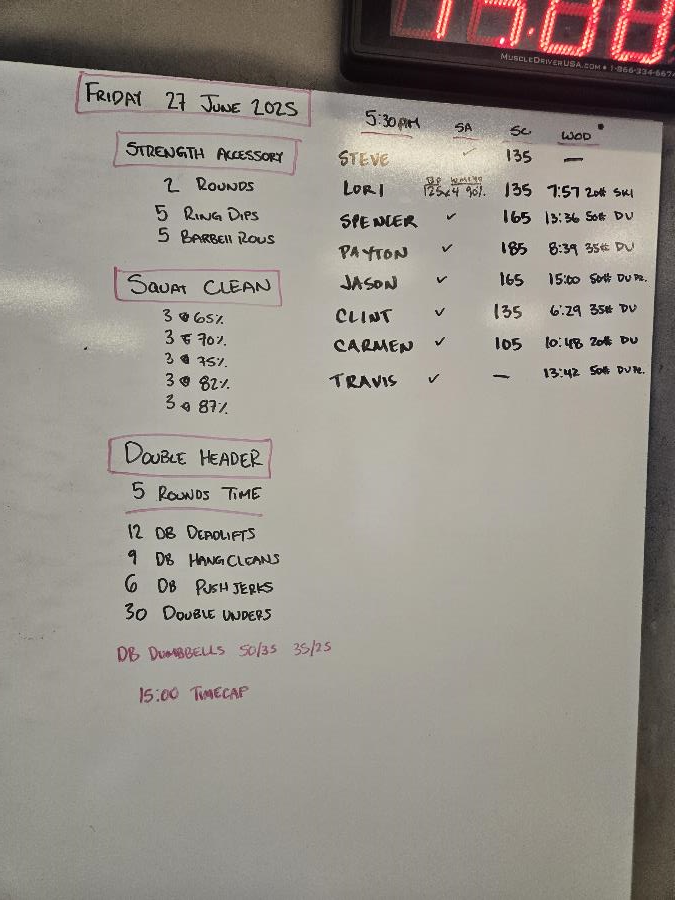 15:00
MUSCLEDRIVERUSA.COM • 1-866-334-667
FRIDAY 27 JUNE 2025
STRENGTH ACCESSORY
2 ROUNDS
5 RING DIPS
5 BARBELL ROWS
SQUAT CLEAN
3 @ 65%
3 @ 70%
3 @ 75%
3 @ 82%
3 @ 87%
DOUBLE HEADER
5 ROUNDS TIME
12 DB DEADLIFTS
9 DB HANG CLEANS
6 DB PUSH JERKS
30 DOUBLE UNDERS
DB DUMBBELLS 50/35 35/25
15:00 TIMECAP
5:30PM SA SC WOD
STEVE ✓ 135 —
LORI 125x4 90% 135 7:57 20# SKI
SPENCER ✓ 165 13:36 50# DU
PAYTON ✓ 185 8:39 35# DU
JASON ✓ 165 15:00 50# DU PR.
CLINT ✓ 135 6:29 35# DU
CARMEN ✓ 105 10:48 20# DU
TRAVIS ✓ — 13:42 50# DU PR.